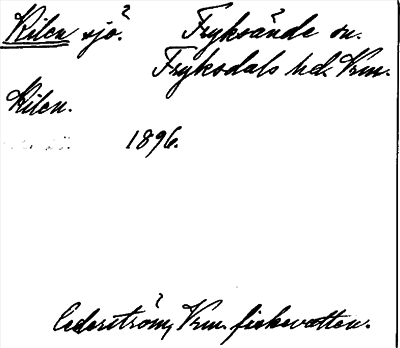 Kilen sjö. Fryksände sn.
Fryksdals hd. Vrm.
Kilen.
1896.
Cederström, Vrm. fiskevatten.